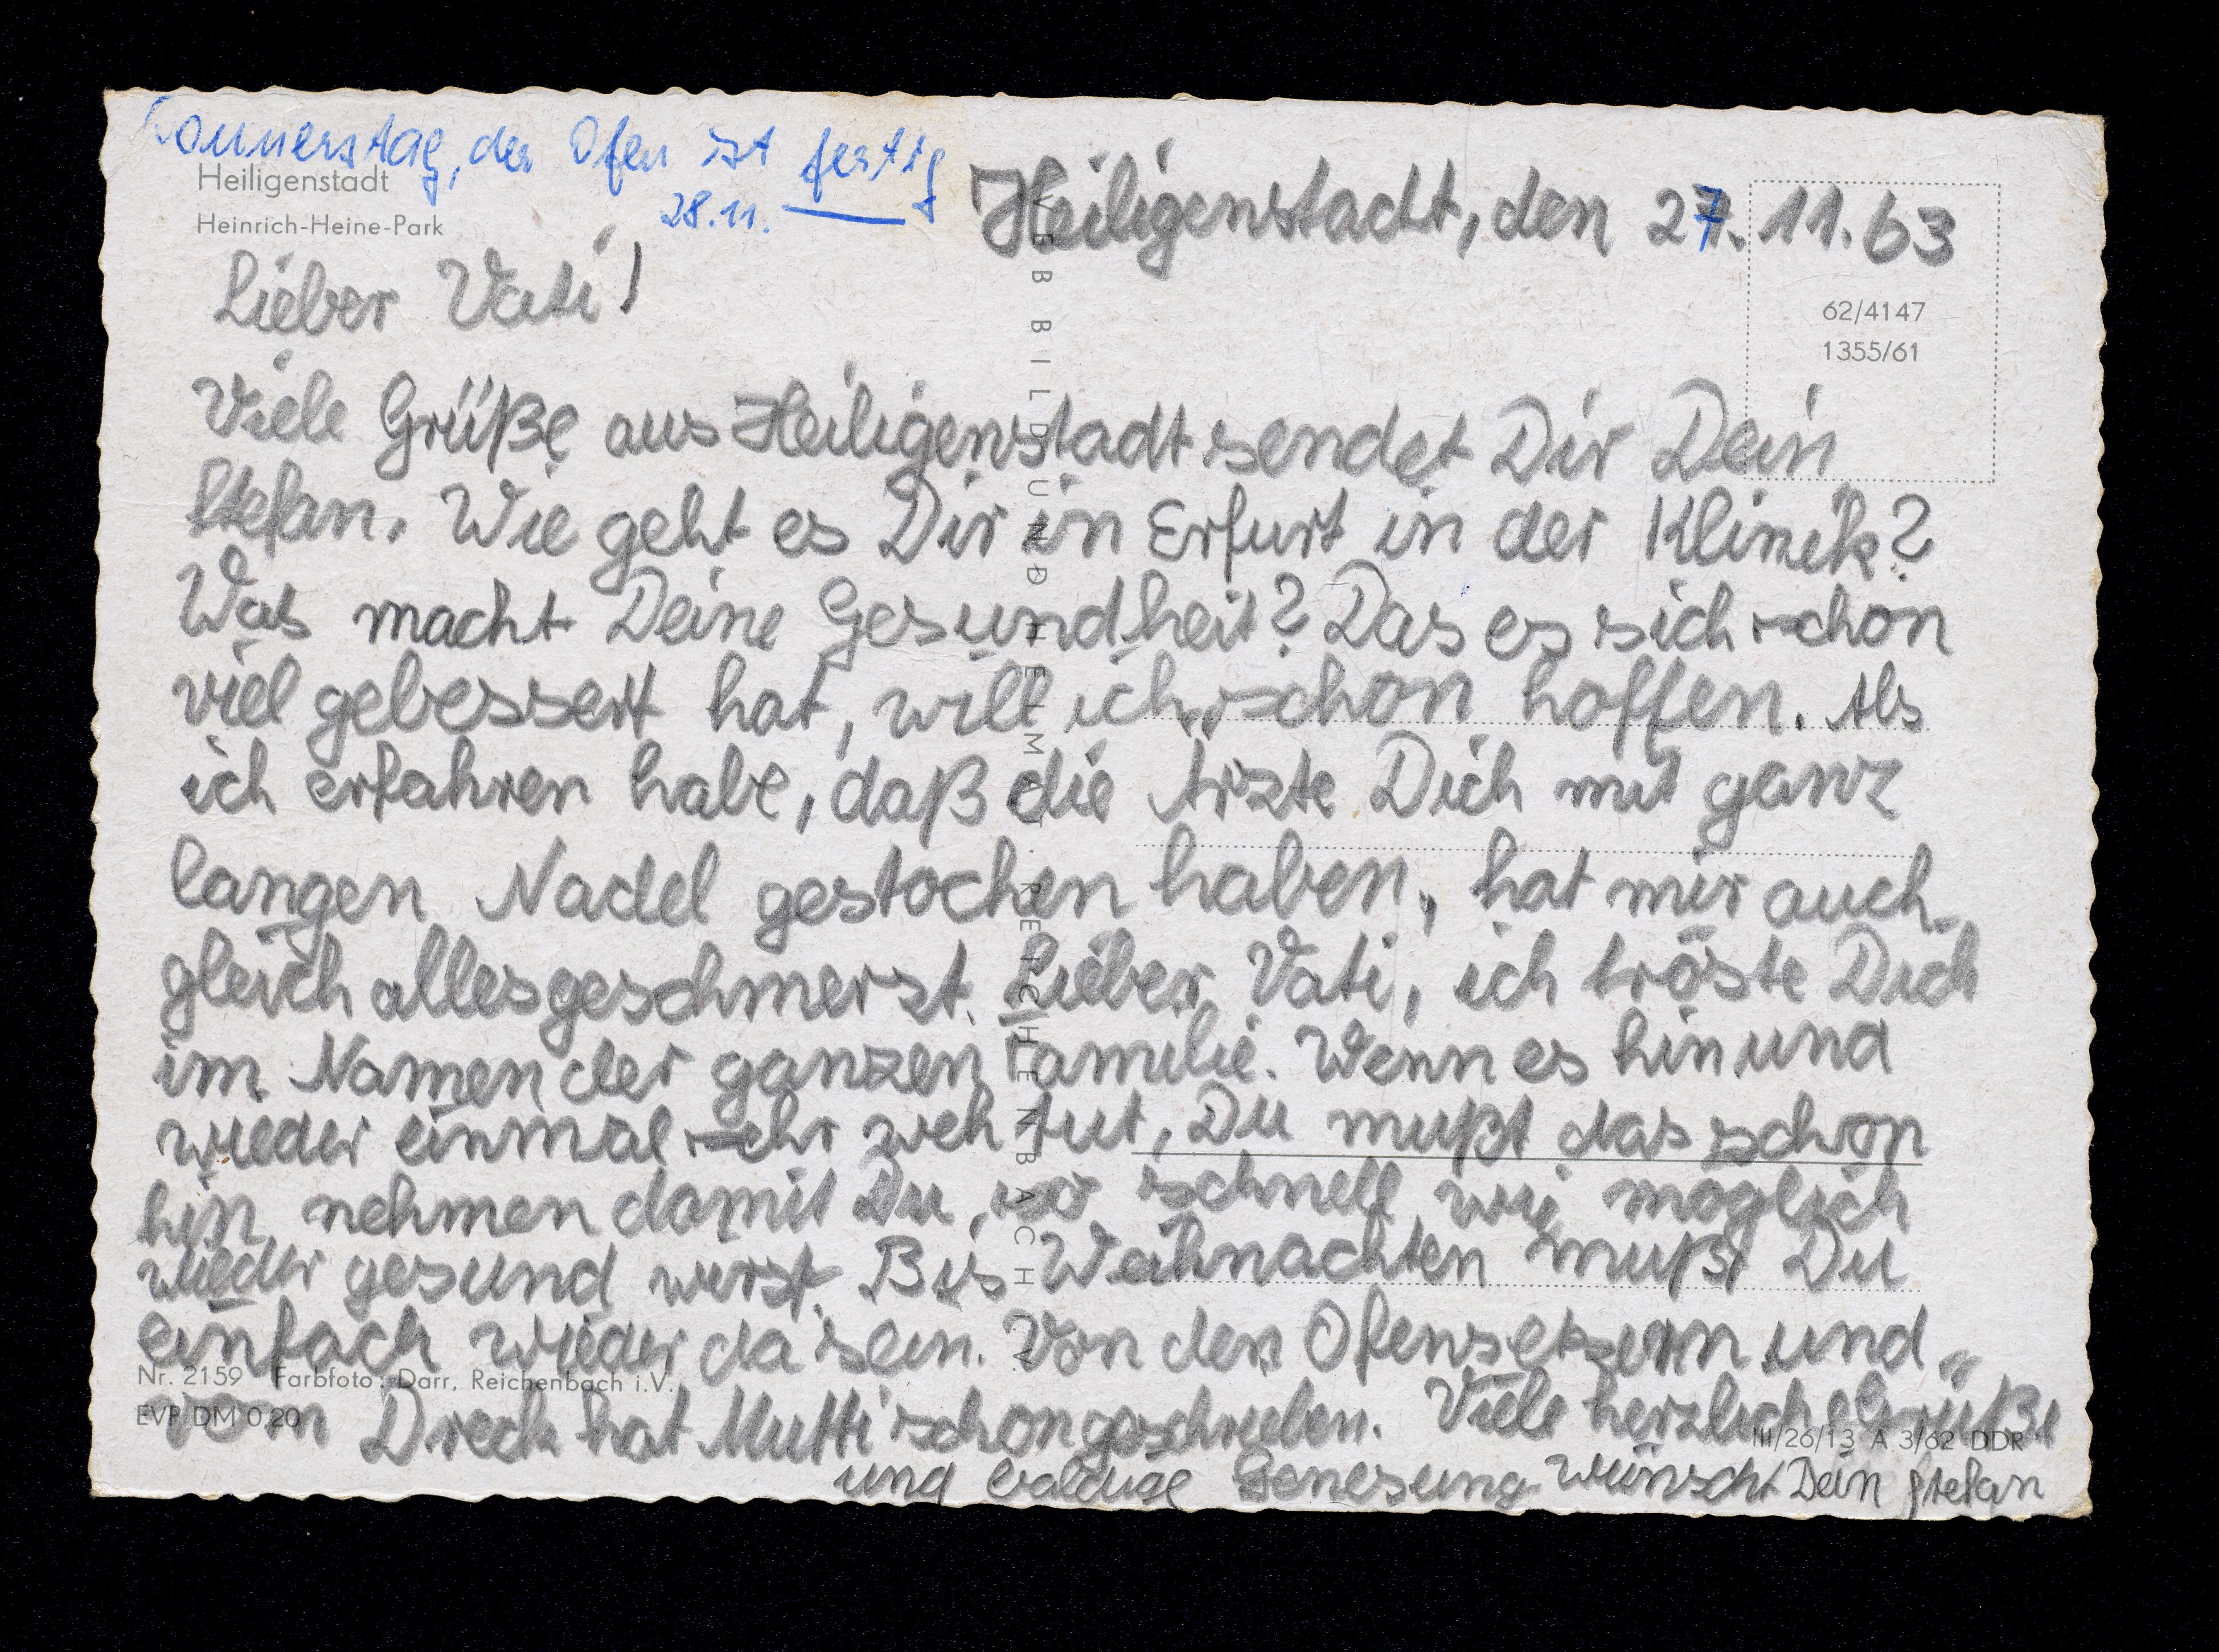 Donnerstag, der Ofen ist fertig
28.11.
Heiligenstadt
Heinrich-Heine-Park
Heiligenstadt, den 27. 11. 63
62/4147
1355/61
Lieber Vati!
Viele Grüße aus Heiligenstadt sendet Dir Dein
Stefan. Wie geht es Dir in Erfurt in der Klinik?
Was macht Deine Gesundheit? Das es sich schon
viel gebessert hat, will ich schon hoffen. Als
ich erfahren habe, daß die Ärzte Dich mit ganz
langen Nadel gestochen haben, hat mir auch
gleich alles geschmerzt. Lieber Vati, ich tröste Dich
im Namen der ganzen Familie. Wenn es hin und
wieder einmal sehr weh tut, Du mußt das schon
hin nehmen damit Du, so schnell wie möglich
wieder gesund wirst. Bis Weihnachten mußt Du
einfach wieder da sein. Von den Ofensetzern und
vom Dreck hat Mutti schon geschrieben. Viele herzliche Grüße
und baldige Genesung wünscht Dein Stefan
Nr. 2159 Farbfoto: Darr, Reichenbach i.V.
EVP DM 0,20
III/26/13 A 3/62 DDR
VEB BILD UND HEIMAT · REICHENBACH I.V.